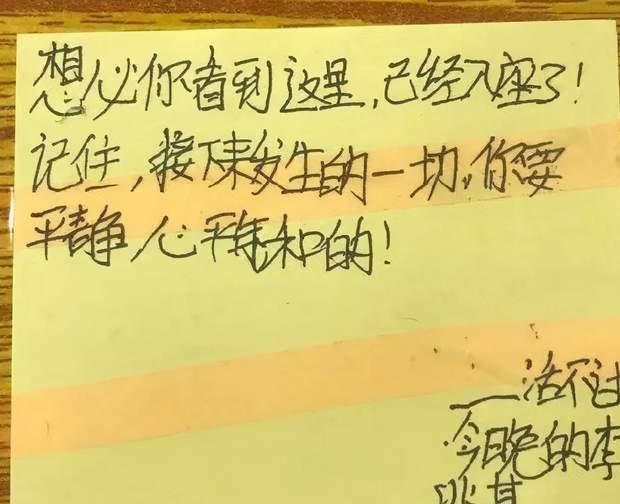 想必你看到这里,已经入座了!
记住,接下来发生的一切,你要
平静,心平气和的!
——活不过
今晚的李
某